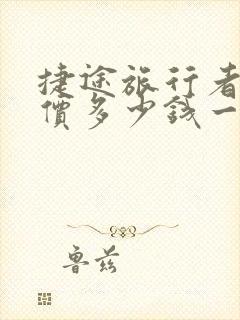 捷途旅行者
價多少錢一
魯茲